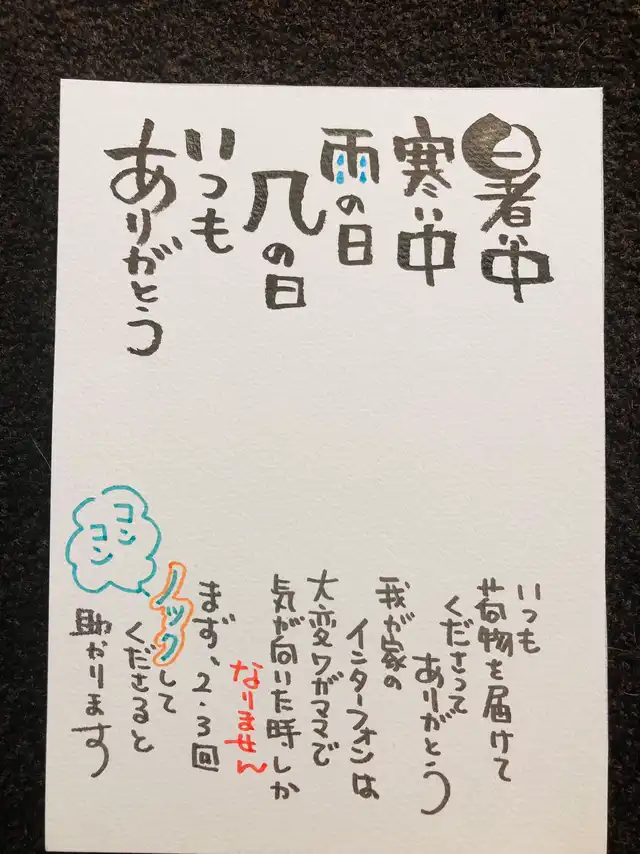 暑い中
寒い中
雨の日
几の日
いつも
ありがとう
いつも
荷物を届けて
くださって
ありがとう
我が家の
インターフォンは
大変ワガママで
気が向いた時しか
なりません
まず、2・3回
ノックして
くださると
助かります
コン
コン